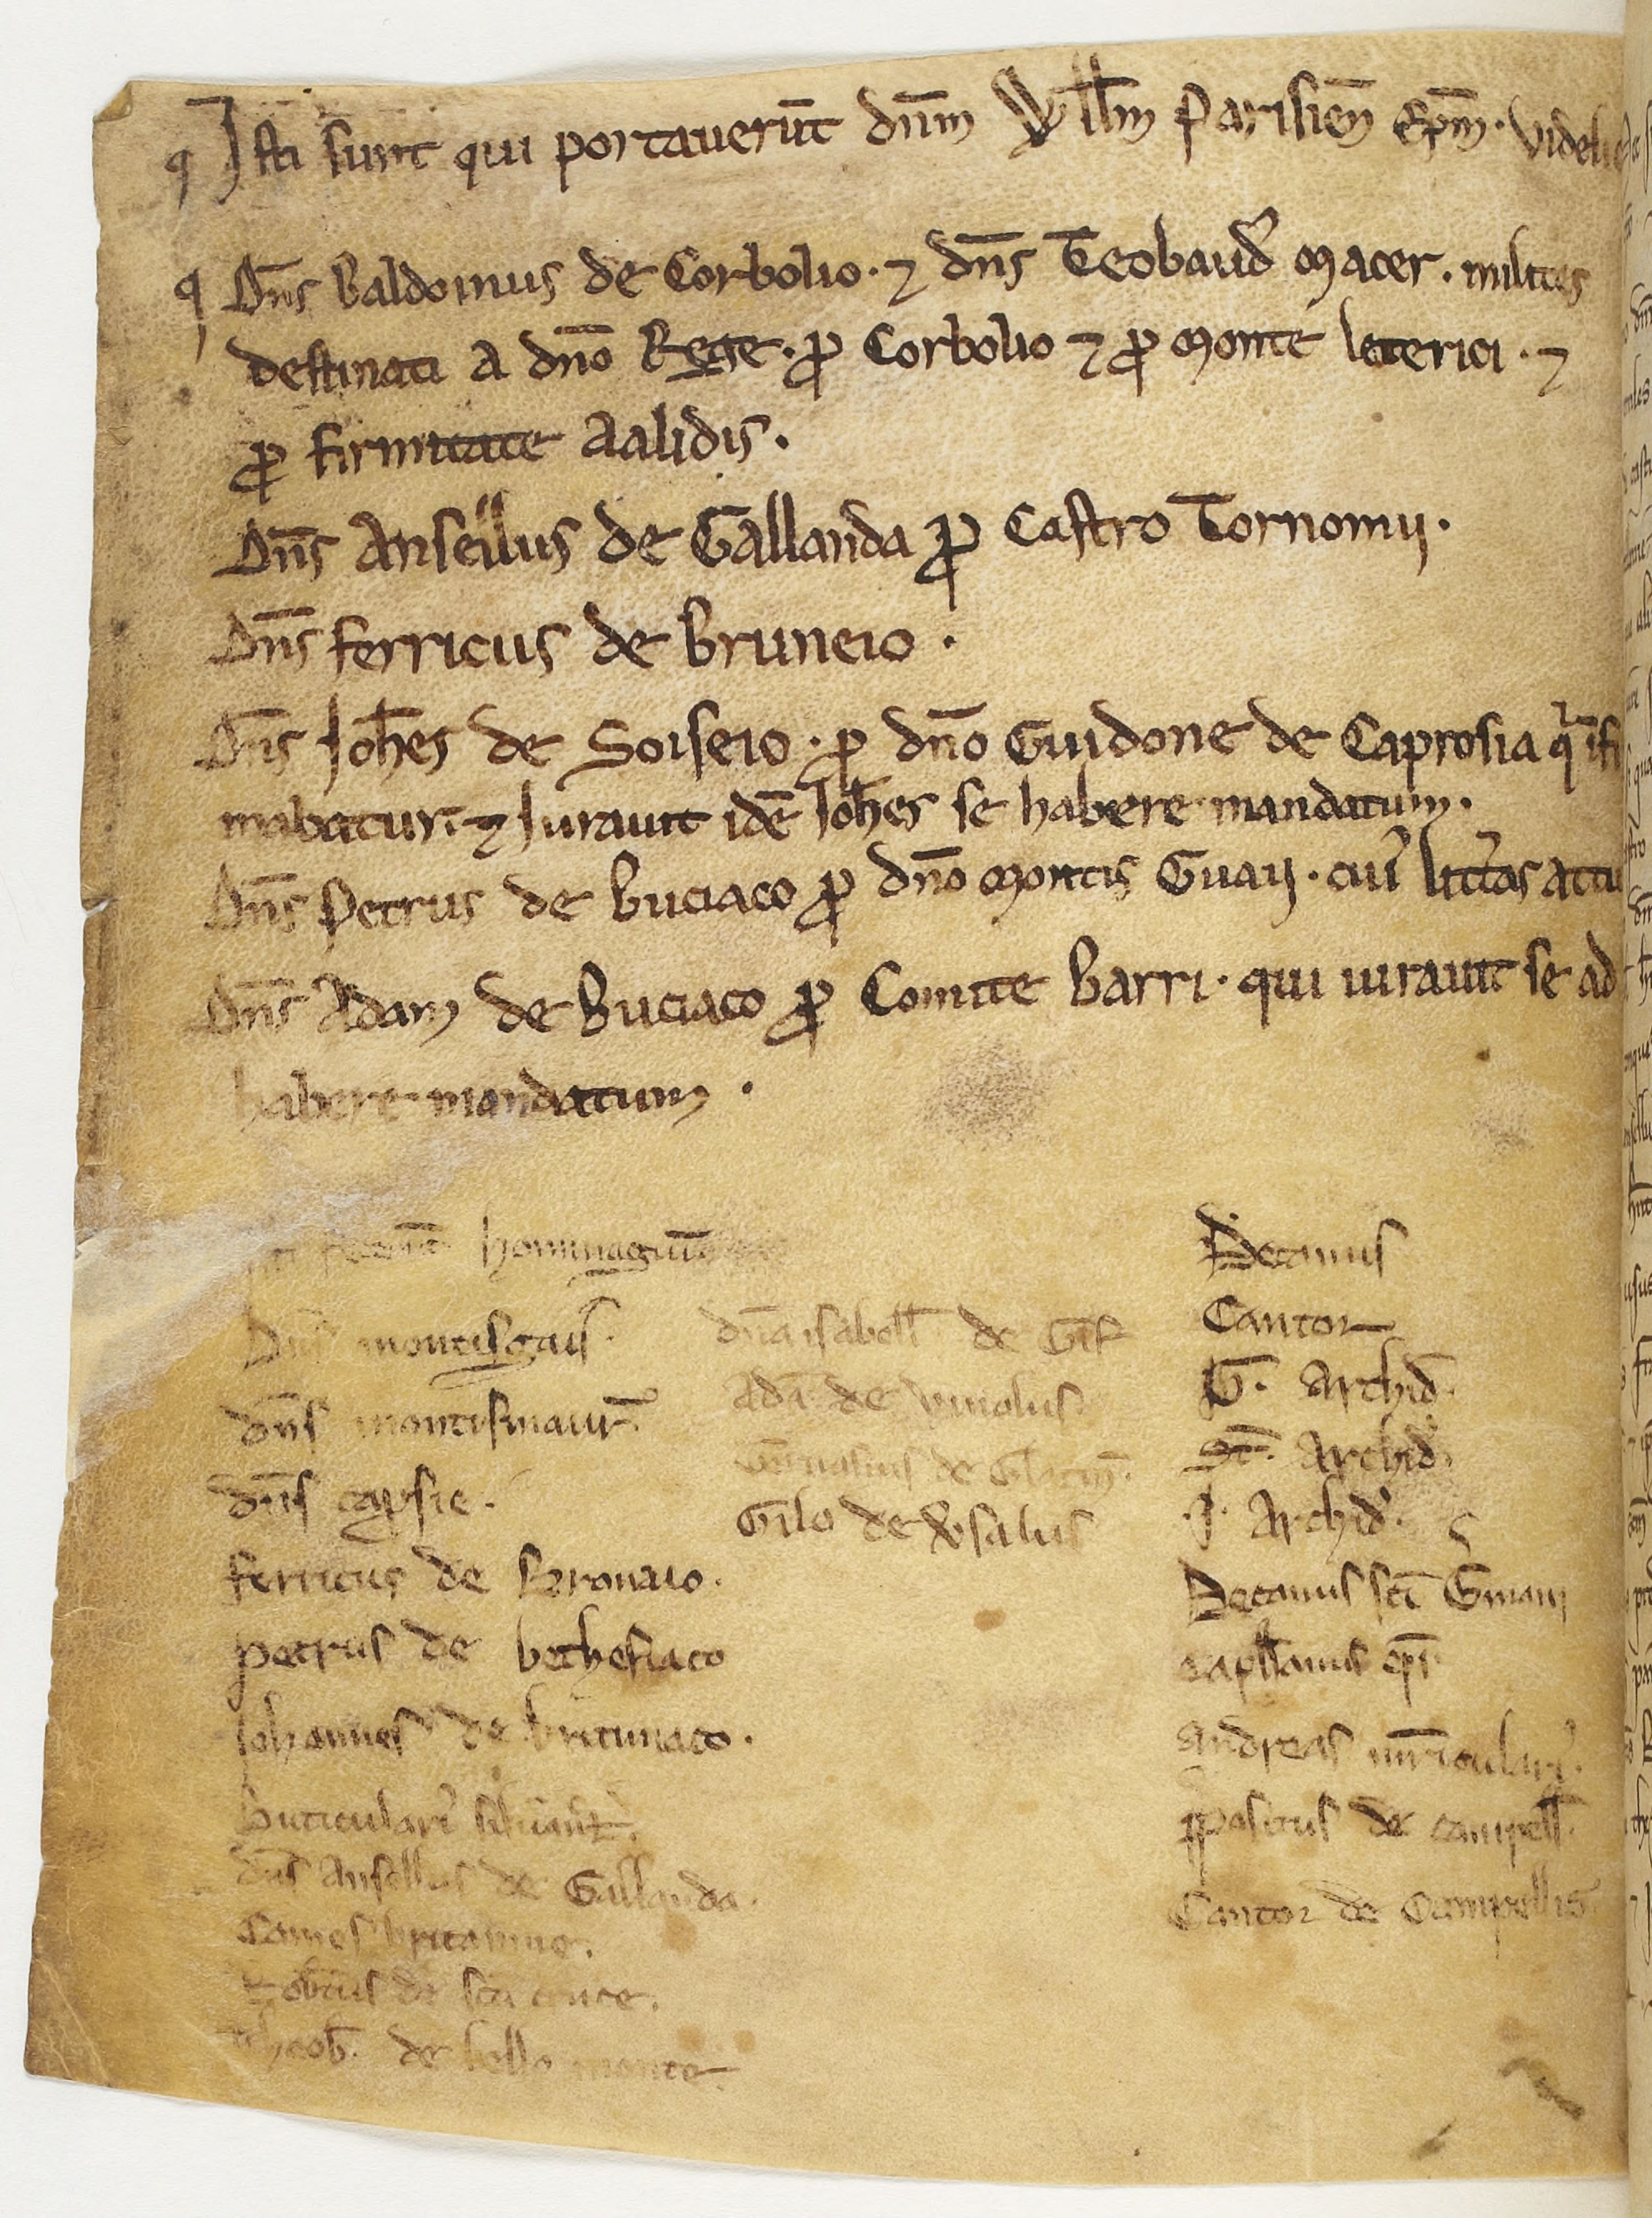 ¶ Isti sunt qui portauerūt dnm̄ Wllm̄ Parisien̄ Epm̄. Videlic
¶ Dns̄ Baldoinus de Corbolio. ⁊ dns̄ Teobaud᾽ Macer. milites
destinati a dno᷒̄ Rege. ꝓ Corbolio ⁊ ꝓ Monte leterici. ⁊
ꝓ firmitate Aalidis.
Dns̄ Ansellus de Gallanda ꝓ Castro Tornomij.
Dns̄ ferricus de Bruneio.
Dns̄ Joh̄es de Soiseio. ꝓ dnō Guidone de Caprosia q̇ ifi
mabatur. ⁊ Jurauit idē Joh̄es se habere mandatum.
Dns̄ Petrus de Buciaco ꝓ dnō Montis Guaij. cui᾽ litt̄as attu
Dns̄ Adam de Buciaco ꝓ Comite Barri. qui iurauit se ad
habere mandatum.
homnagiū
Dns̄ montisgaij.
dns̄ montismaur̄
dns̄ capsie.
ferricus de Bronaio.
petrus de bethesiaco
Johannes de britiniaco.
Buticulari᾽ siluan̄t.
dns̄ Ansellus de Gallanda.
Comes britannie.
Rob̄tus de scā cruce.
Theob̄. de bello monte.
dn̄a isabell̄ de Gif
Adā de
de
Gilo de V̄salus
Decanus
Cantor
G. Archid̄.
St̄. Archid̄.
.J. Archid᾽.
Decanus scī Ḡmani
capllanus epī.
Andreas mr̄iculari᾽.
ꝓpositus de campell̄.
Cantor de Campellis